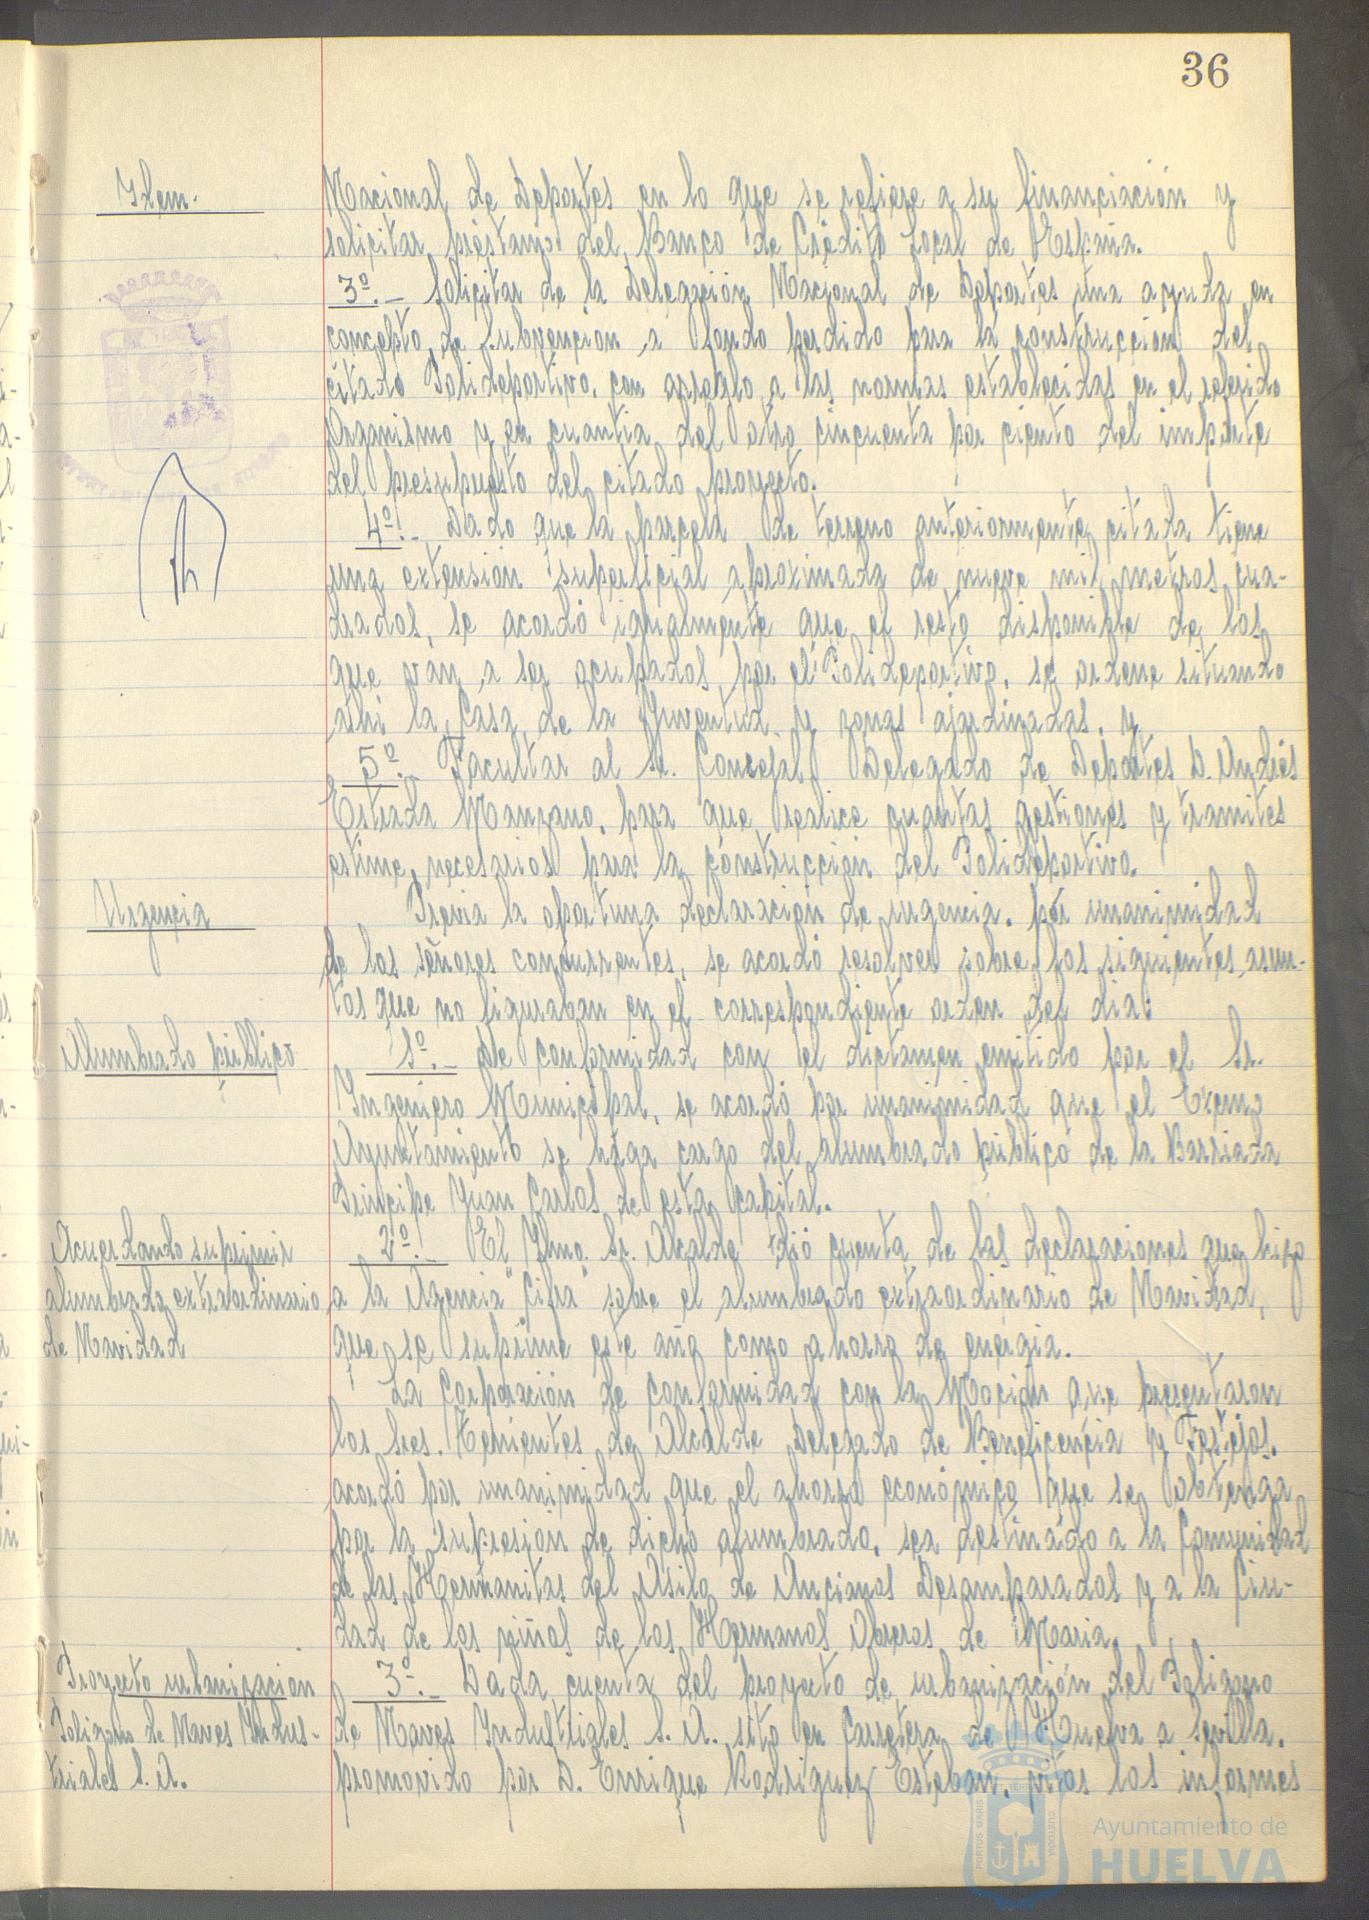 36
Idem.
Nacional de Deportes en lo que se refiere a su financiación y
solicitar préstamo del Banco de Crédito Local de España.
3º.- Solicitar de la Delegación Nacional de Deportes una ayuda en
concepto de subvención a fondo perdido para la construcción del
citado Polideportivo, con arreglo a las normas establecidas en el referido
Organismo y en cuantia del otro cincuenta por ciento del importe
del presupuesto del citado proyecto.
4º.- Dado que la parcela de terreno anteriormente citada tiene
una extensión superficial aproximada de nueve mil metros cua-
drados, se acordó igualmente que el resto disponible de los
que ván a ser ocupados por el Polideportivo, se ordene situando
alli la Casa de la Juventud y zonas ajardinadas, y
5º.- Facultar al Sr. Concejal Delegado de Deportes D. Andrés
Estrada Manzano, para que realice cuantas gestiones y tramites
estime necesarios para la construcción del Polideportivo.
Urgencia
Previa la oportuna declaración de urgencia, por unanimidad
de los señores concurrentes, se acordó resolver sobre los siguientes asun-
tos que no figuraban en el correspondiente orden del dia:
Alumbrado público
1º.- De conformidad con el dictamen emitido por el Sr.
Ingeniero Municipal, se acordó por unanimidad que el Excmo
Ayuntamiento se haga cargo del alumbrado público de la Barriada
Principe Juan Carlos de esta capital.
Acuerdando suprimir
alumbrado extraordinario
de Navidad
2º.- El Ilmo. Sr. Alcalde dió cuenta de las declaraciones que hizo
a la Agencia "Cifra" sobre el alumbrado extraordinario de Navidad,
que se suprime este año como ahorro de energia.
La Corporación de conformidad con la Moción que presentaron
los Sres. Tenientes de Alcalde Delegado de Beneficencia y Festejos,
acordó por unanimidad que el ahorro económico que se obtenga
por la supresión de dicho alumbrado, sea destinado a la Comunidad
de las Hermanitas del Asilo de Ancianos Desamparados y a la Ciu-
dad de los niños de los Hermanos Obreros de Maria.
Proyecto urbanización
Poligono de Naves Indus-
triales S.A.
3º.- Dada cuenta del proyecto de urbanización del Poligono
de Naves Industriales S.A. sito en Carretera de Huelva a Sevilla,
promovido por D. Enrique Rodriguez Esteban, vitos los informes
Ayuntamiento de
HUELVA